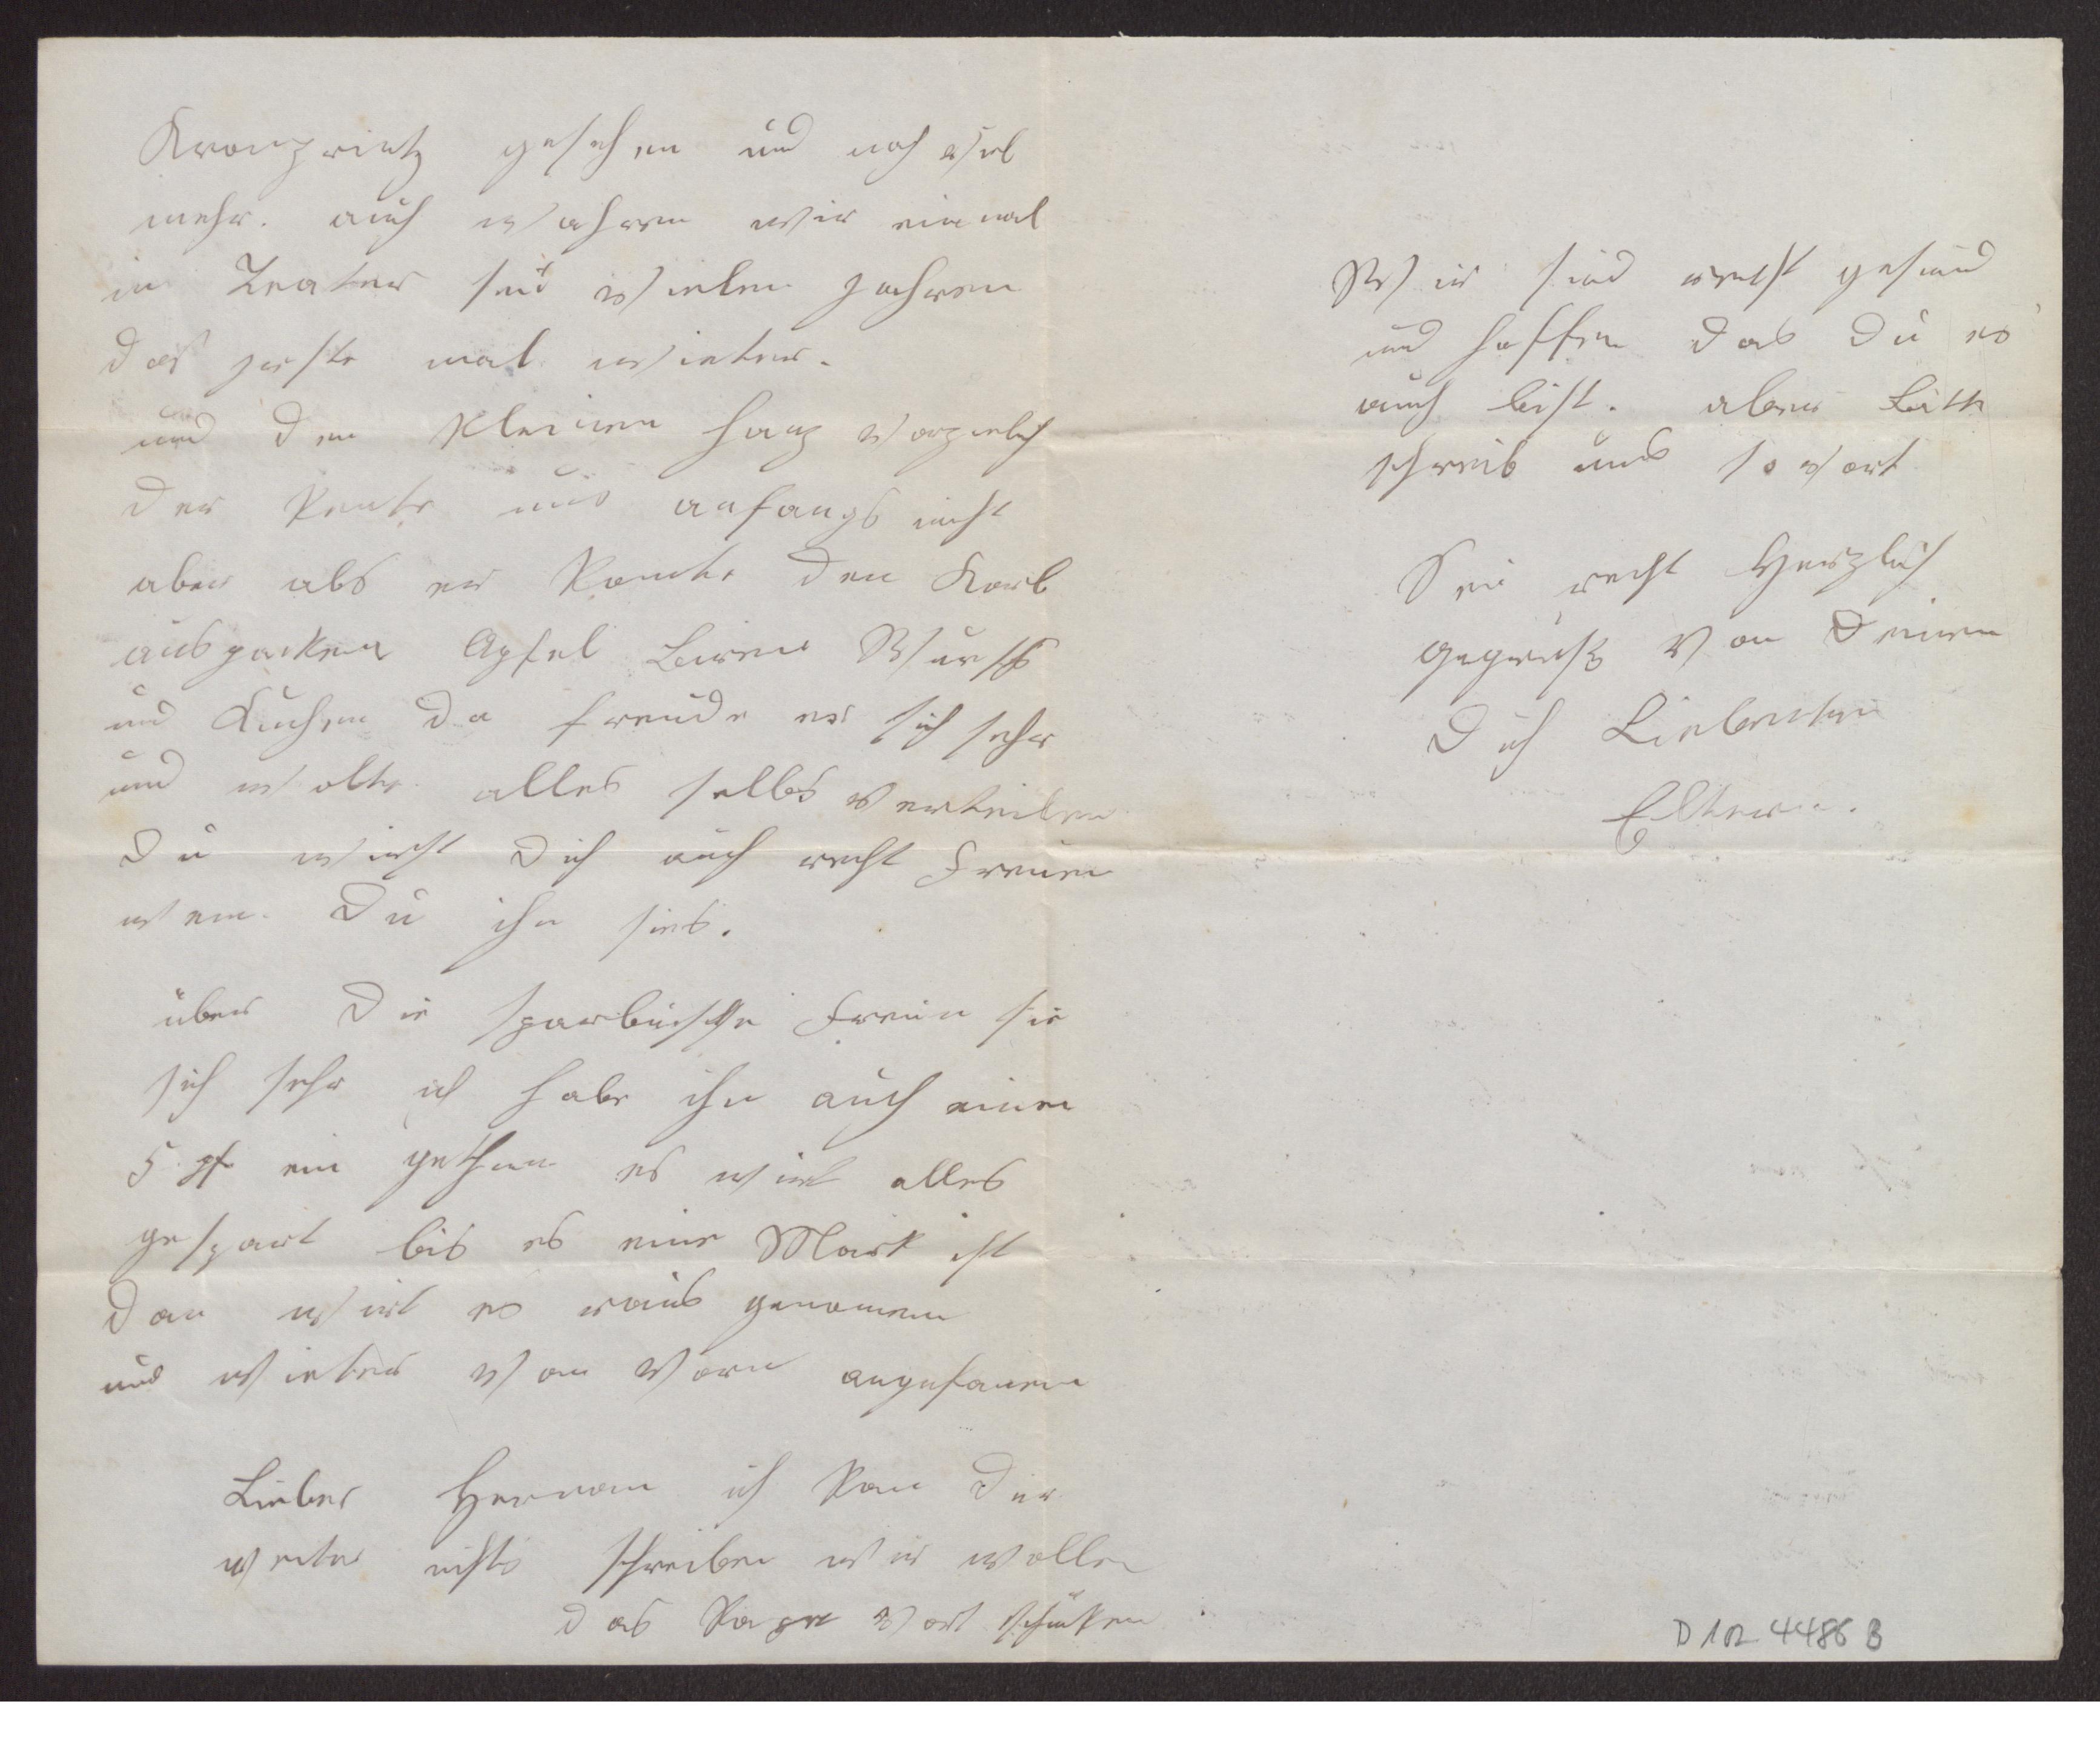 Kronprintz gesehen und noch viel
mehr. auch wahren wir einmal
in Teater seid vielen Jahren
das erste mal wieter.
und den Kleinen Hanz vorzüglich
der kente uns anfangs nicht
aber als er konte den Korb
auspacken Apfel Biren Wurst
und Kuchen da freude er sich sehr
und wolte alles selbs verteilen
Du wirst Dich auch recht Freuen
wen Du ihn sies.
über Die sparbüchse Freun sie
sich sehr ich habe ihn auch einen
5 pf ein gethan es wirt alles
gespart bis es eine Mark ist
Dan wirt es raus genomen
und wieter von vorn angefanen
Lieber Herman ich kan Dir
weiter nichts schreiben wir wollen
das vort schicken
Wir sind recht gesund
und hoffen das Du es
auch bist. aber Bitte
schreib uns sovort
Sei recht Herzlich
gegrüst von Deinen
Dich Liebenten
Eltern.
D 102 4486 B